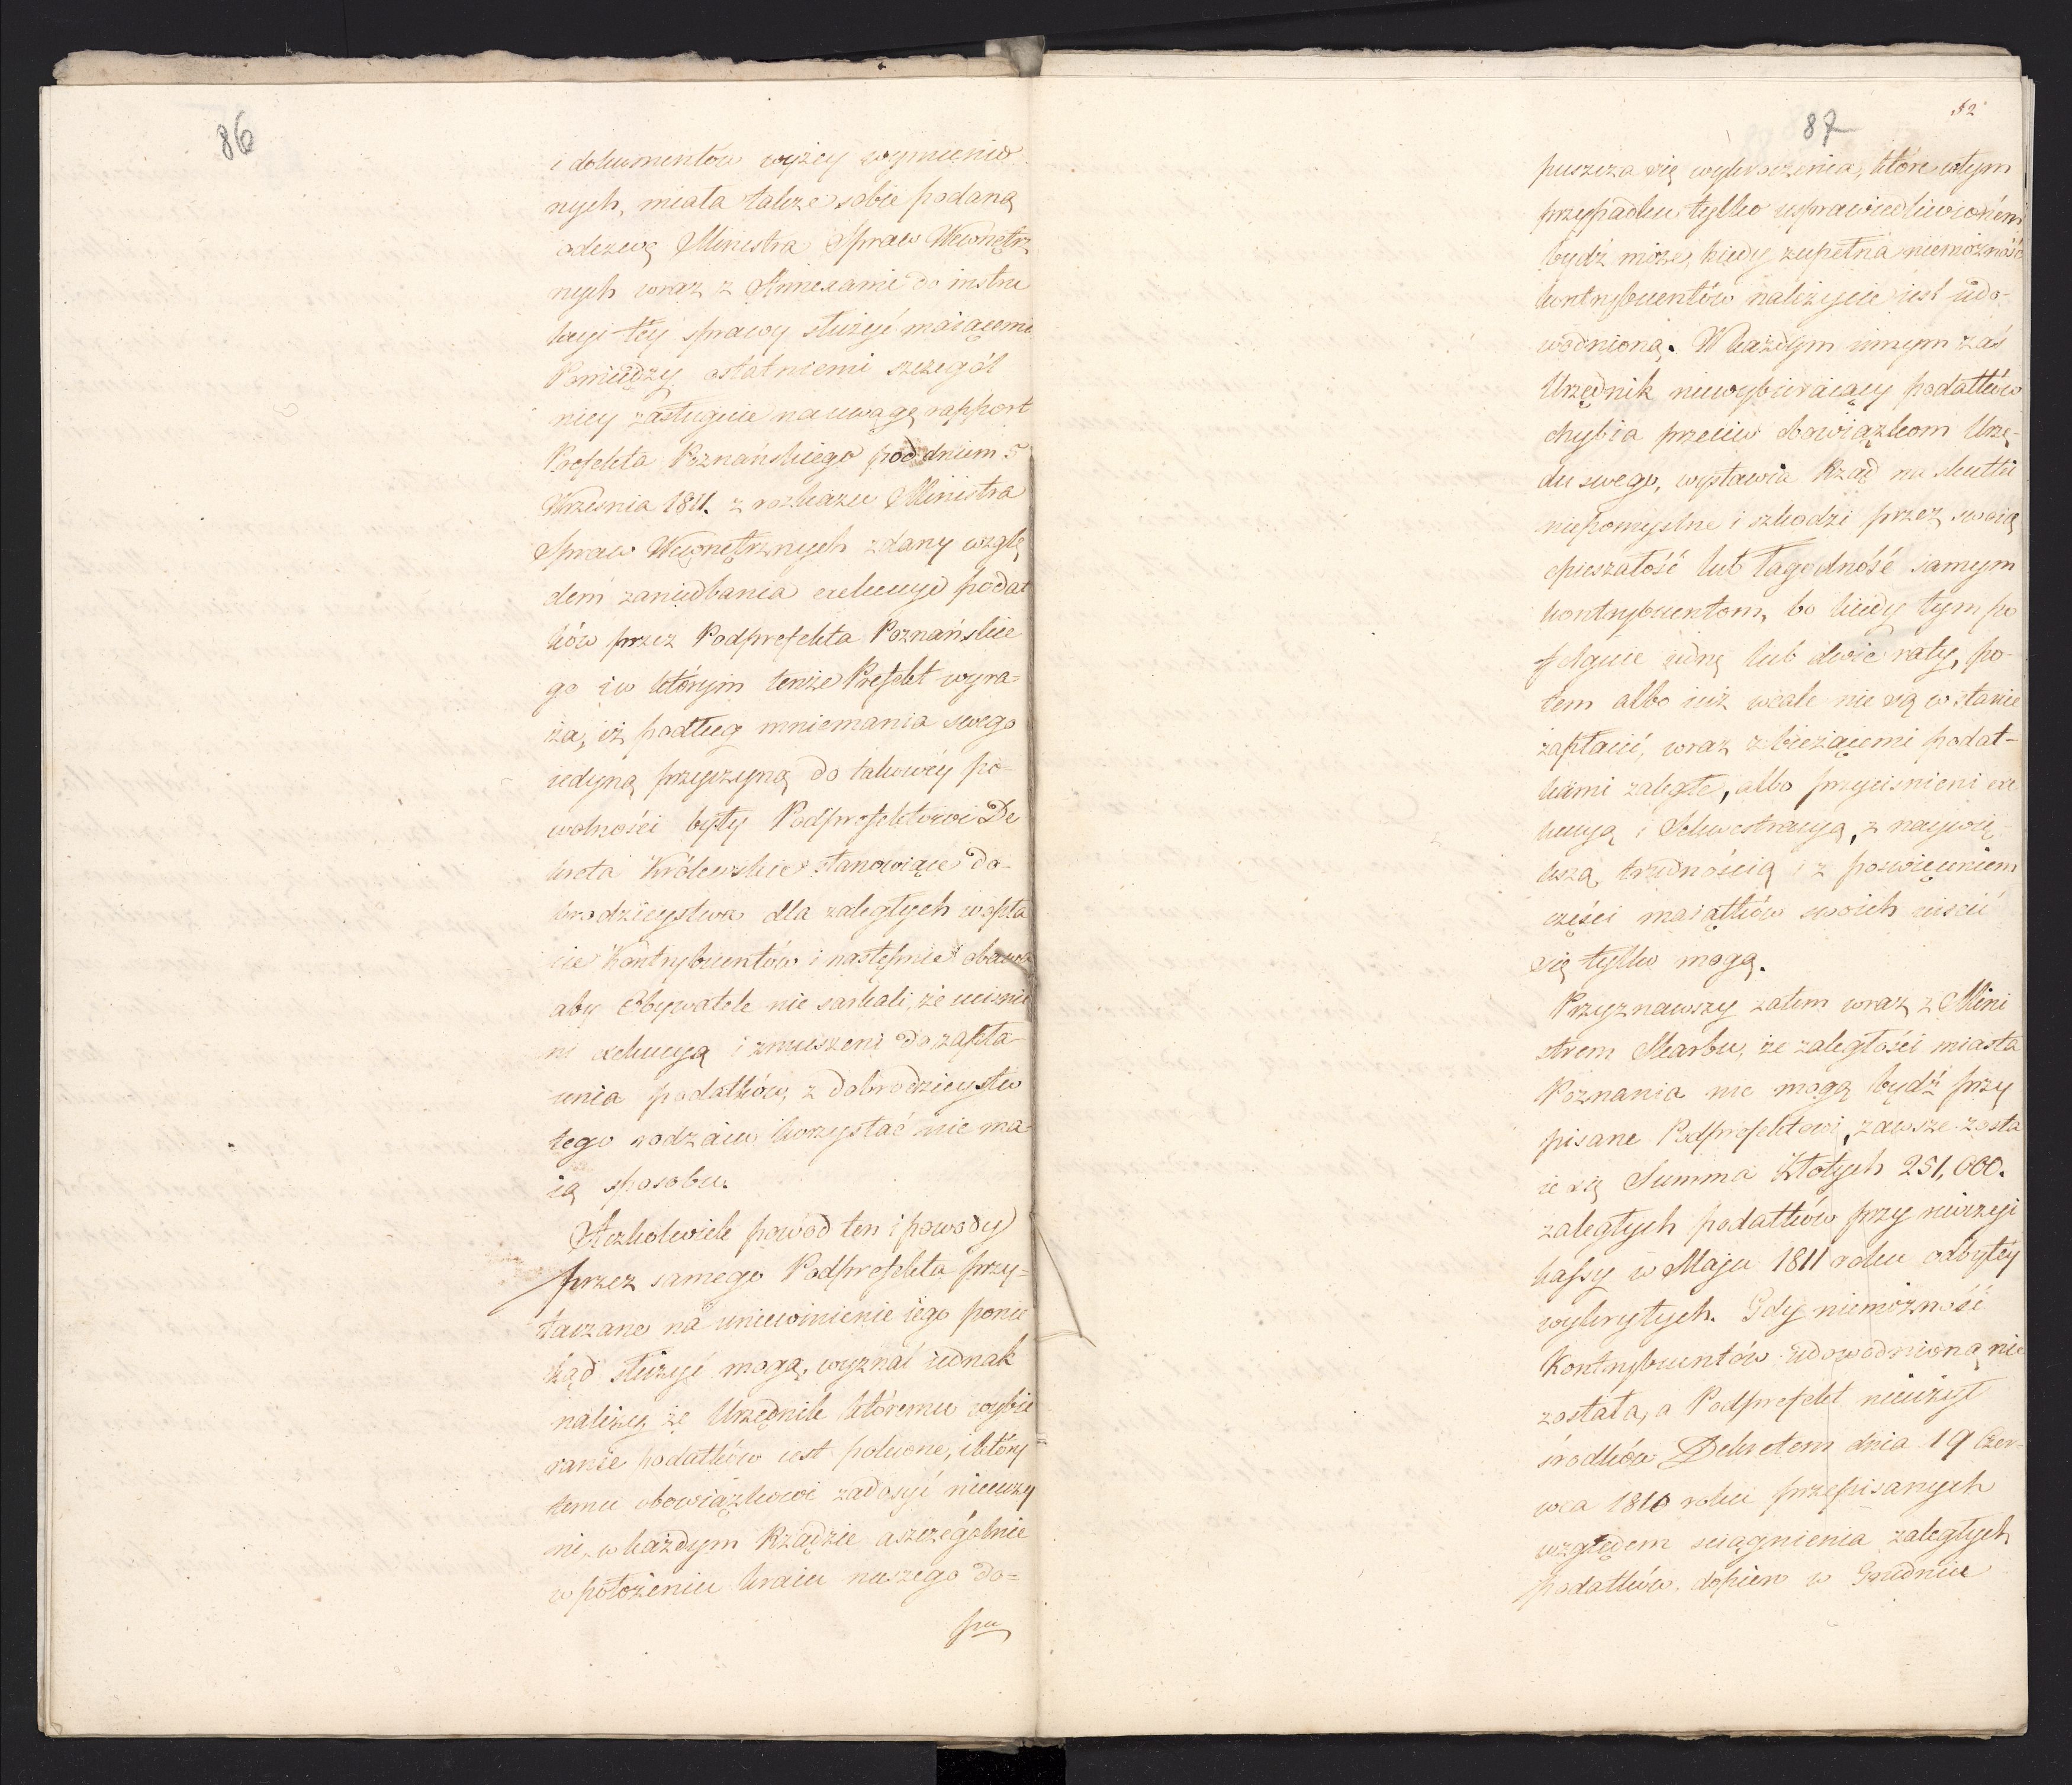 86
i dokumentów wyżey wymienio
nych, miała także sobie podaną
odezwę Ministra Spraw Wewnętrz
nych wraz z Annexami do instru
kcyi tey sprawy służyć maiącemi
Pomiędzy ostatniemi szczegól
niey zasługuie na uwagę rapport
Prefekta Poznańskiego pod dniem 5
Września 1811. z rozkazu Ministra
Spraw Wewnętrznych zdany wzglę
dem zaniedbania exekucyi podat
ków przez Podprefekta Poznańskie
go i w którym tenże Prefekt wyra=
ża, iż podług mniemania swego
iedyną przyczyną do takowey po-
wolności były Podprefektowi De
kreta Królewskie stanowiące do-
brodzieystwa dla zaległych w opła
cie Kontrybuentów i następnie obawa
aby Obywatele nie sarkali, że uciśnie
ni exekucyą i zmuszeni do zapła-
cenia podatków, z dobrodzieystw
tego rodzaiu korzystać nie ma-
ią sposobu.
Aczkolwiek powód ten i powody
przez samego Podprefekta przy=
taczane na uniewinienie iego ponie
kąd służyć mogą, wyznać iednak
należy że Urzędnik któremu wybie
ranie podatków iest polecone, i który
temu obowiązkowi zadosyć nieuczy
ni, w każdym Rządzie a szczególnie
w położeniu kraiu naszego do=
pu
52
87
puszcza się wykroczenia, które w tym
przypadku tylko usprawiedliwioném
bydź może, kiedy zupełna niemożność
kontrybuentów należycie iest udo-
wodnioną. W każdym innym zaś
Urzędnik niewybieraiący podatków
chybia przeciw obowiązkom Urzę-
du swego, wystawia Rząd na skutki
niepomyślne i szkodzi przez swoią
opieszałość lub łagodność samym
kontrybuentom, bo kiedy tym po
folguie iedną lub dwie raty, po-
tem albo iuż wcale nie są w stanie
zapłacić, wraz z bieżącemi podat-
kami zaległe, albo przyciśnieni exe
kucyą i Sekwestracyą, z naywię
kszą trudnością i z poświęceniem
części maiątków swoich uiścić
się tylko mogą.
Przyznawszy zatem wraz z Mini
strem Skarbu, że zaległości miasta
Poznania nie mogą bydź przy
pisane Podprefektowi, zawsze zosta
ie się Summa Złotych 251,000.
zaległych podatków przy rewizyi
kassy w Maju 1811 roku odbytey
wykrytych. Gdy niemożność
Kontrybuentów udowodnioną nie
została, a Podprefekt nieużył
środków Dekretem dnia 19 Czer-
wca 1810 roku przepisanych
względem sciągnienia zaległych
podatków, dopiero w Grudniu